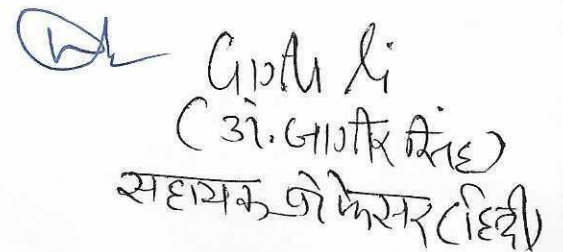 (डॉ. जागीर सिंह)
सहायक प्रोफेसर (हिंदी)